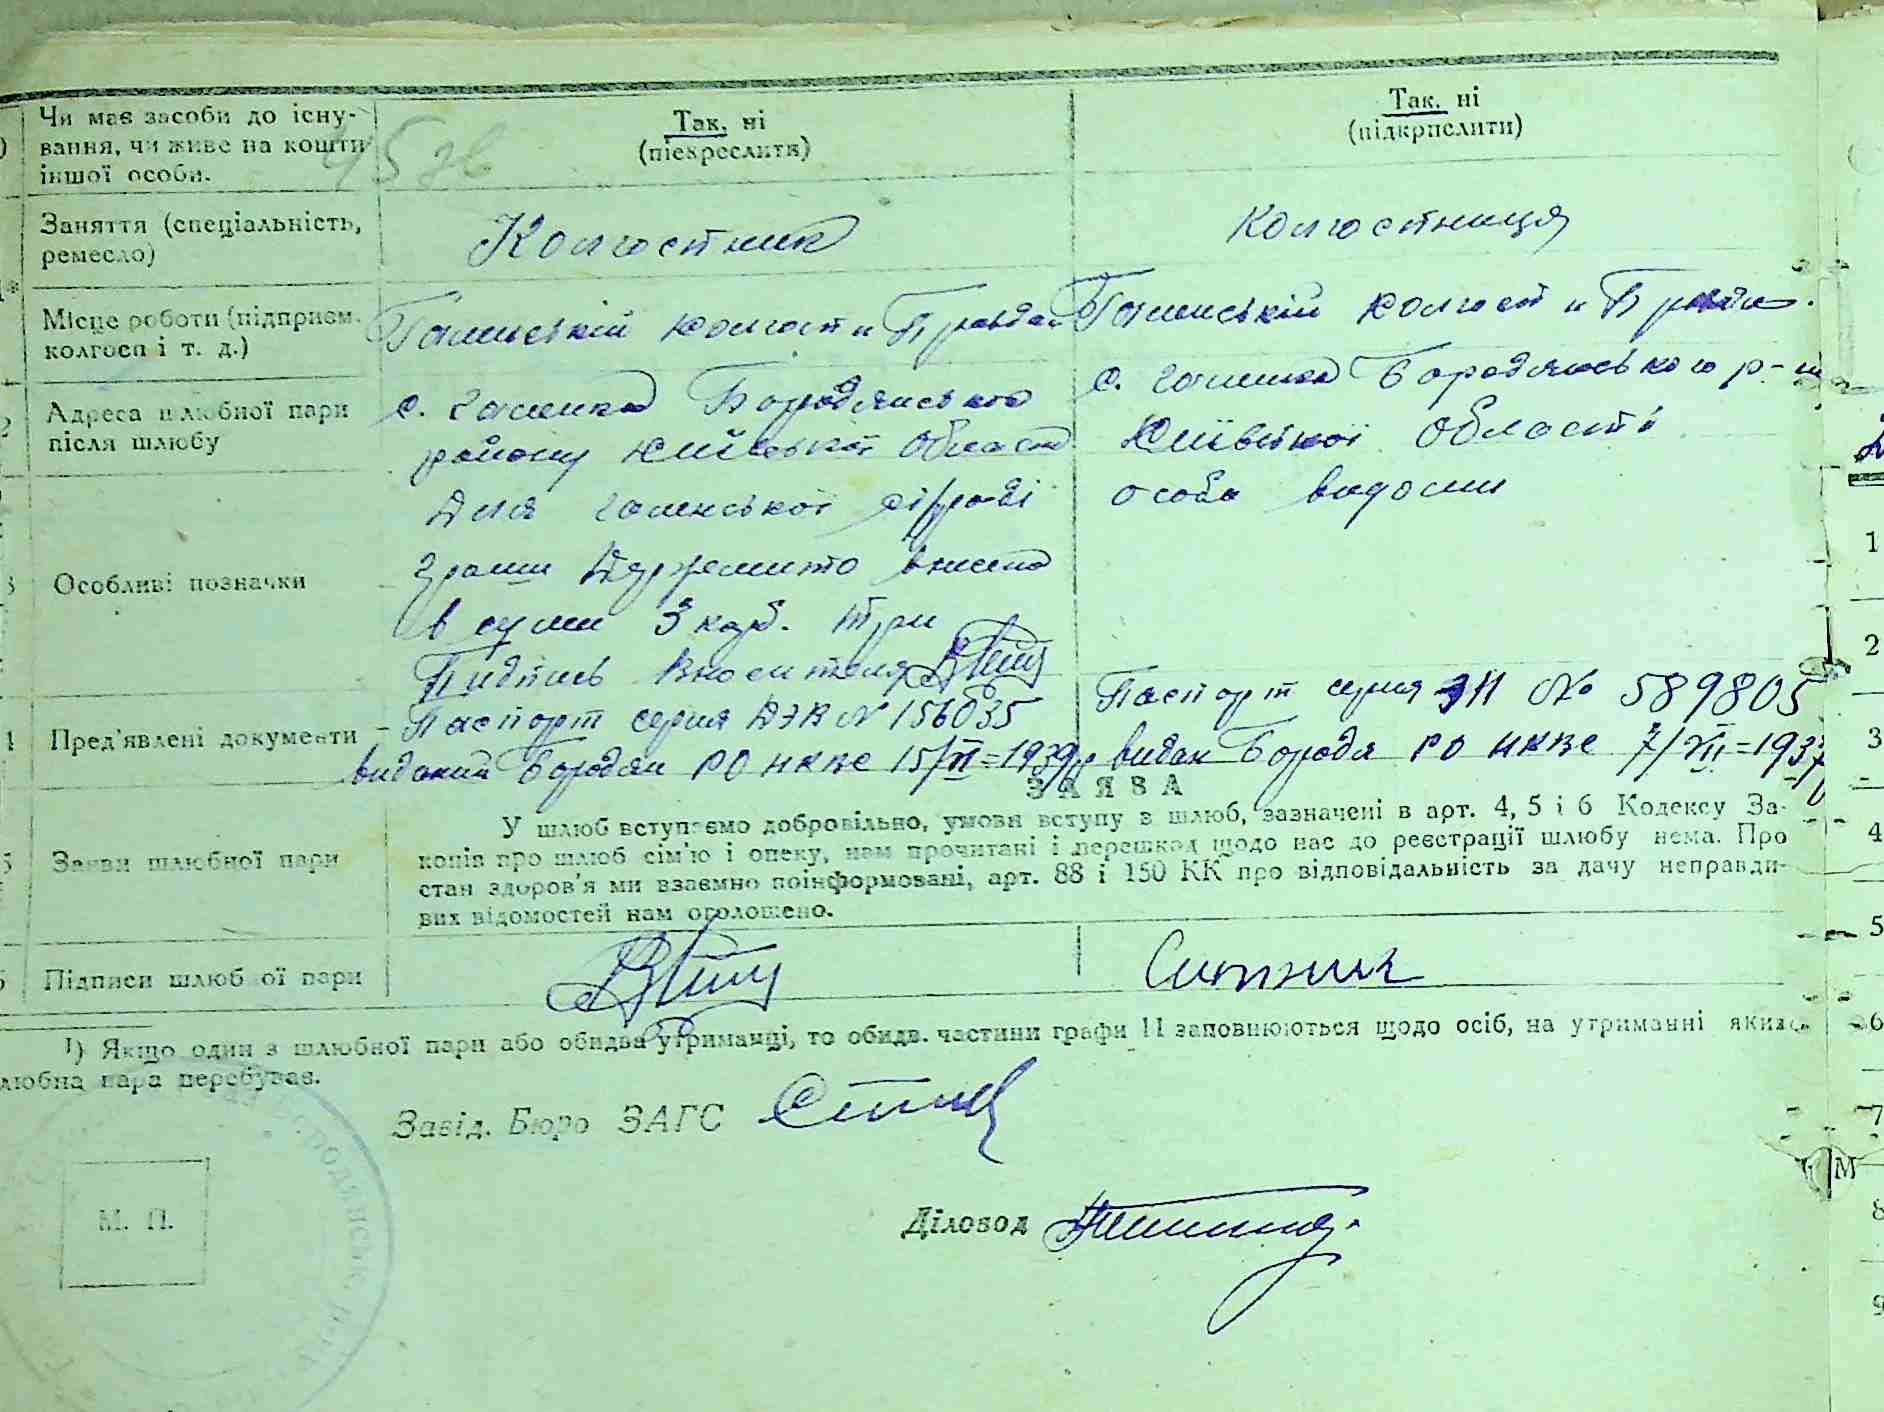 Чи має засоби до існу-
вання, чи живе на кошти
іншої особи.
Так, ні
(підкреслити)
Так, ні
(підкрислити)
Заняття (спеціальність,
ремесло)
Колгостник
колгостниця
Місце роботи (підприєм.
колгосп і т. д.)
колгост "Правда"
колгост "Правда".
Адреса шлюбної пари
після шлюбу
с. Бородянського
району Київської Області
с. Бородянського р-ну
Київської Області
Особливі позначки
Для сільради
гроши внесено
в суми 3 карб. три
Підпись
особа видома
Пред'явлені документи
Паспорт серия ДЭВ № 156035
виданий Бородян РО НКВС 15/VI=1939р
Паспорт серия ЗН № 589805
видан Бородя РО НКВС 7/XII=1937
ЗАЯВА
Заяви шлюбної пари
У шлюб вступаємо добровільно, умови вступу в шлюб, зазначені в арт. 4, 5 і 6 Кодексу За-
конів про шлюб сім'ю і опеку, нам прочитані і перешкод щодо нас до реєстрації шлюбу нема. Про
стан здоров'я ми взаємно поінформовані, арт. 88 і 150 КК про відповідальність за дачу неправди-
вих відомостей нам оголошено.
Підписи шлюб ої пари
Ситник
¹) Якщо один з шлюбної пари або обидва утриманці, то обидв. частини графи 11 заповнюються щодо осіб, на утриманні яких
любна пара перебуває.
Завід. Бюро ЗАГС
М. П.
Діловод
1
2
3
4
5
6
7
М
8
9